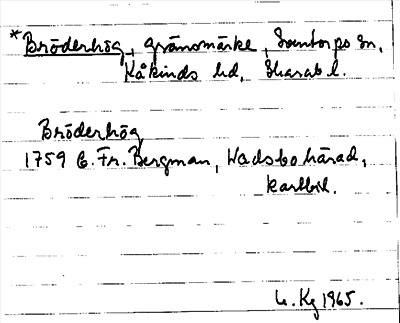 *Bröderhög, gränsmärke, Santorps sn,
Kåkinds hd, Skarab l.
Bröderhög
1759 C. Fr. Bergman, Wadsbo härad,
kartbil.
Kg 1965.